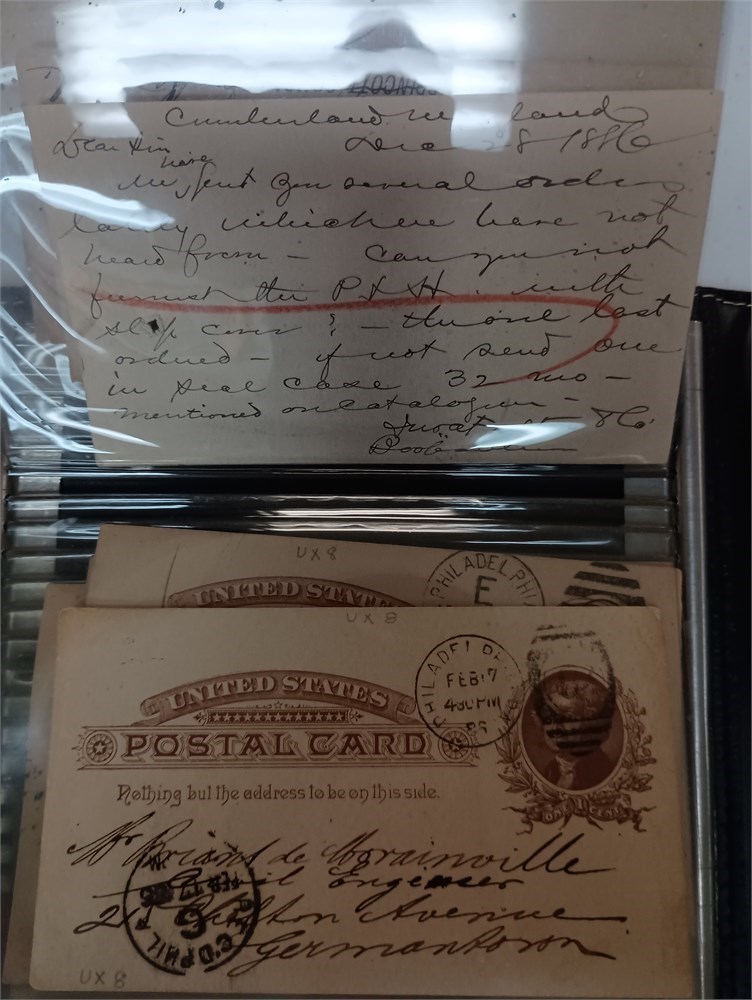 Cumberland Maryland
Dec 28 1886
Dear Sir
have
We sent you several orders
lately which we have not
heard from – can you not
furnish the P & H. with
slip cover ? – the one last
ordered – if not send one
in seal case 32 mo –
mentioned on catalogue –
& Co
UX 8
PHILADELPHIA
UNITED STATES
UX 8
PHILADELPHIA
FEB 17
430 PM
86
UNITED STATES
POSTAL CARD
Nothing but the address to be on this side.
Mr Briant de Morainville
Civil Engineer
Avenue
Germantown
REC'D PHILA
FEB 17
6
UX 8